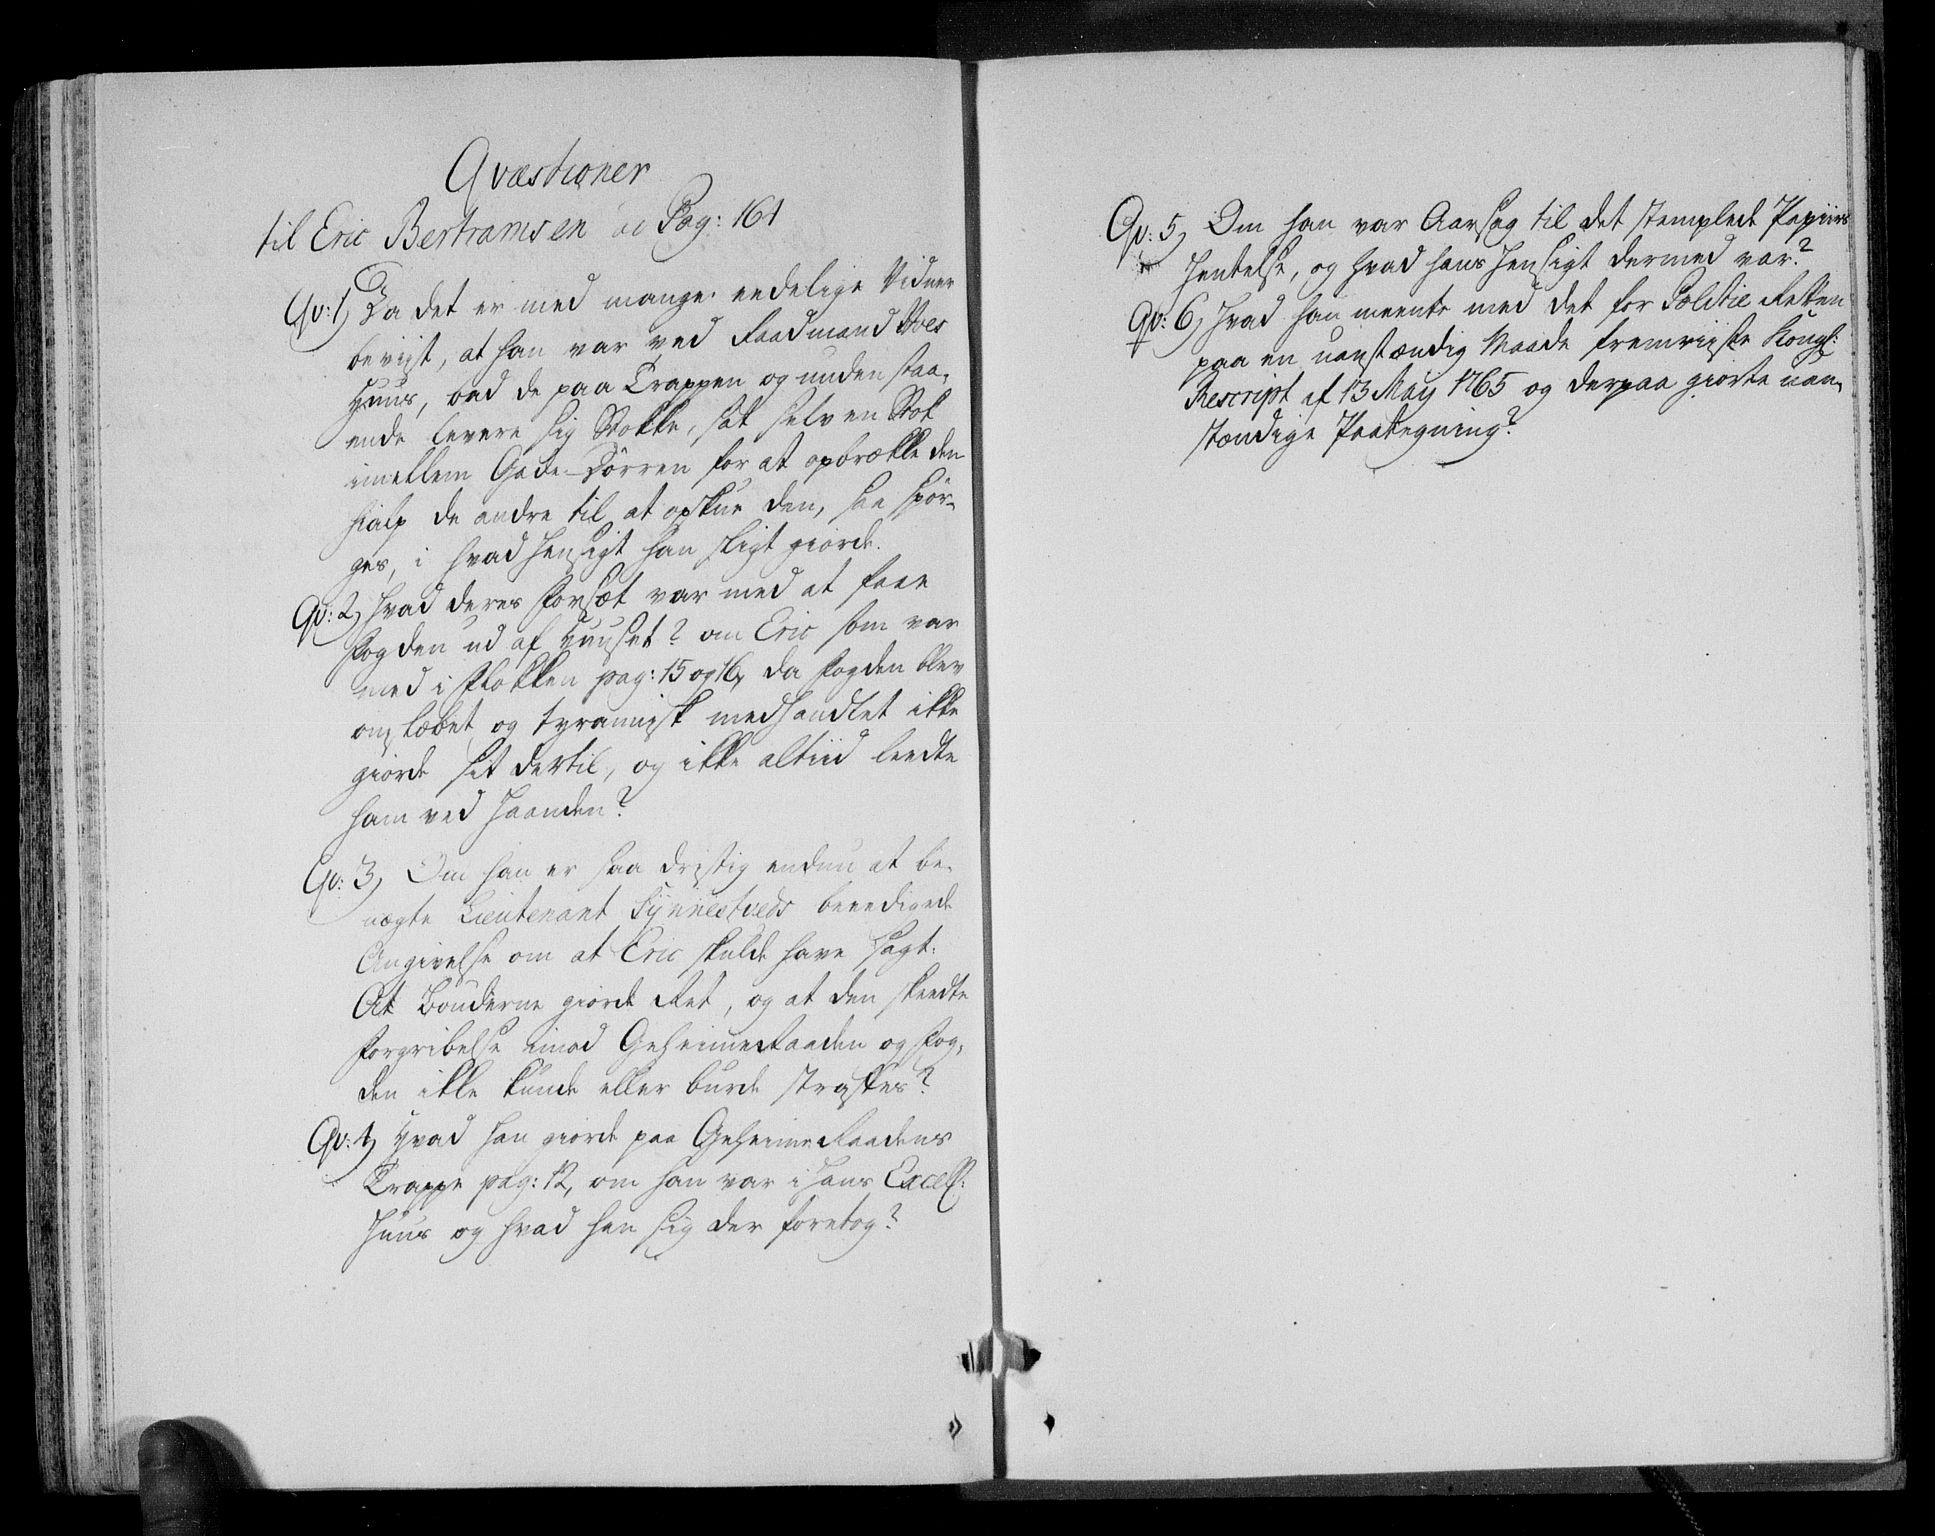 Qvæstioner
til Eric Bertramsen ad Pag: 161
Qv: 1, Da det er med mange eedelige Vidner
beviist, at han var ved Raadmand Stoes
Huus, bad de paa Trappen og unden staa-
ende levere sig Stokke, sat selv en Stok
imellem Gade-Dörren for at opbrække den
hialp de andre til at opskue den, saa spör-
ges, i hvad Hensigt han sligt giorde.
Qv: 2, Hvad deres Forsæt var med at faae
Fogden ud af Huuset? om Eric som var
med i Flokken pag: 15 og 16, da Fogden blev
omløbet og tyrannisk medhandlet ikke
giorde sit dertil, og ikke altiid leedte
ham ved Haanden?
Qv: 3, Om han er saa dristig endnu at be-
nægte Lieutenant Synnestveds beeedigede
Angivelse om at Eric skulde have sagt:
At Bönderne giorde Ret, og at den skeedte
Forgribelse imod GeheimeRaaden og Fog-
den ikke kunde eller burde straffes?
Qv: 4, Hvad han giorde paa GeheimeRaadens
Trappe pag: 12, om han var i Hans Excell:
Huus og hvad han sig der foretog?
Qv: 5, Om han var Aarsag til det stemplede Papiirs
Hentelse, og hvad hans Hensigt dermed var?
Qv: 6, Hvad han meente med det for Politie Retten
paa en uanstændig Maade fremviiste Kongl:
Rescript af 13 May 1765 og derpaa giorte uan-
stændige Paategning?